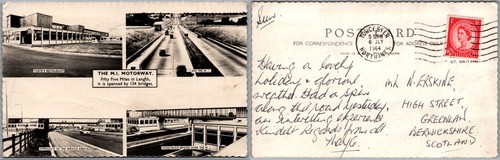 THE M.I. MOTORWAY.
Fifty Five Miles in Length,
it is spanned by 134 bridges.
POST CARD
FOR CORRESPONDENCE
FOR ADDRESS ONLY
TOWCESTER
8 JLY
1964
NORTHANTS.
Having a lovely
holiday & glorious
weather. Had a spin
along this road yesterday,
an interesting experience
Kindest Regards from all
Mr N. ERSKINE,
HIGH STREET,
GREENLAW,
BERWICKSHIRE,
SCOTLAND